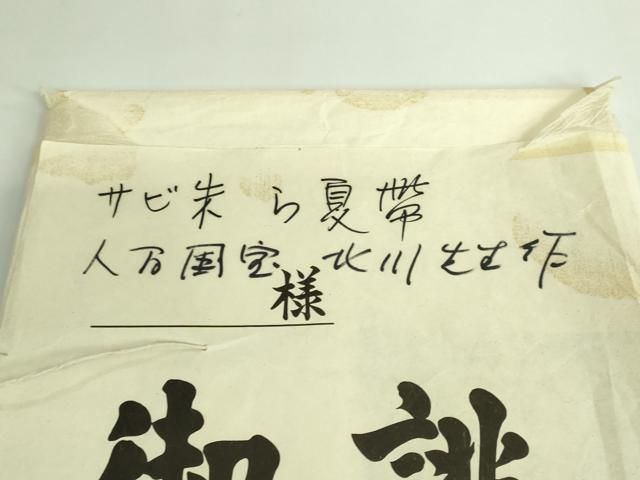 サビ朱 ら夏帯
人間国宝 北川先生作
様
御誂